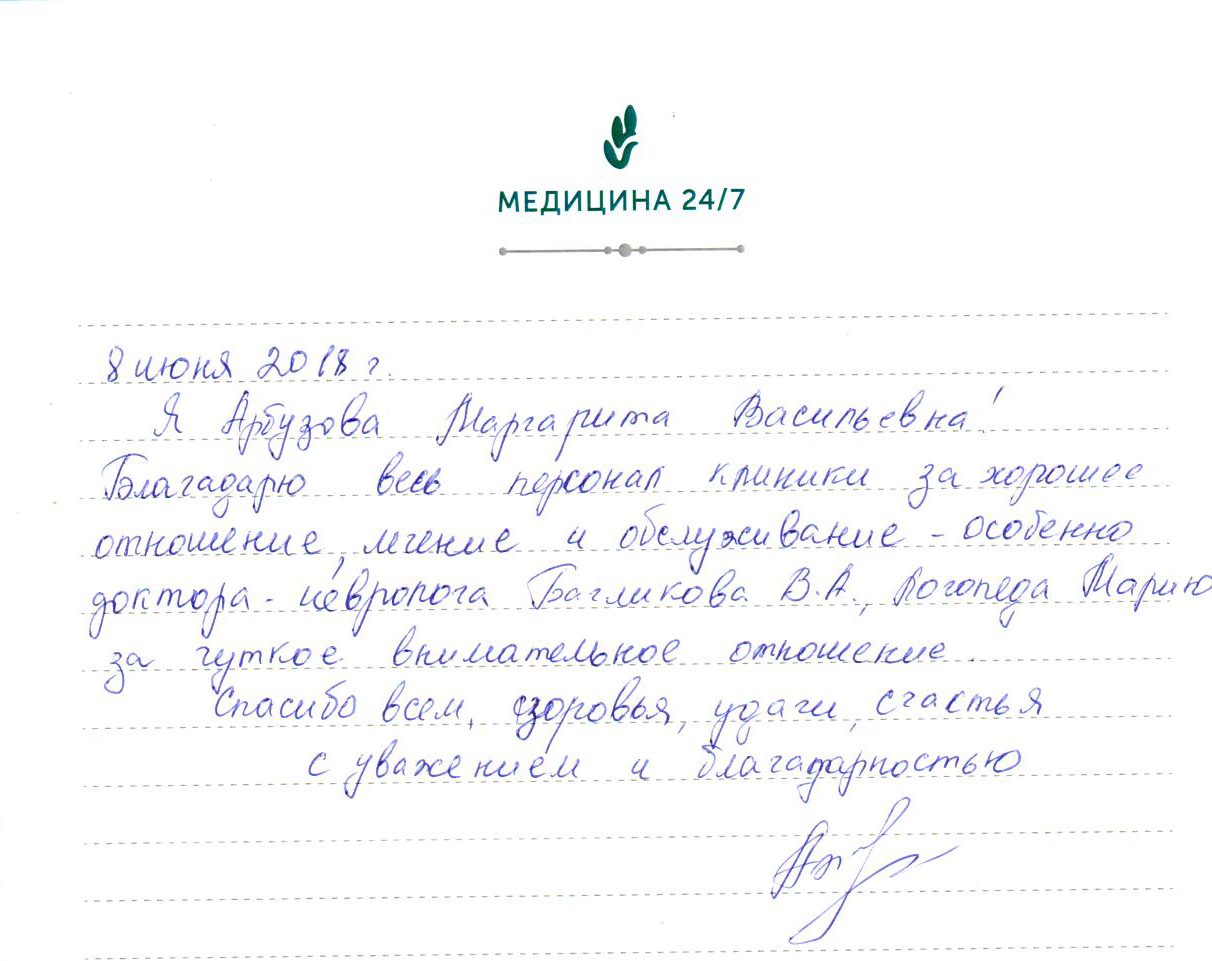 МЕДИЦИНА 24/7
8 июня 2018 г.
Я Арбузова Маргарита Васильевна!
Благадарю весь персонал клиники за хорошее
отношение, лечение и обслуживание - особенно
доктора - невролога Багликова В.А., логопеда Марию
за чуткое внимательное отношение.
Спасибо всем, здоровья, удачи, счастья
с уважением и благадарностью